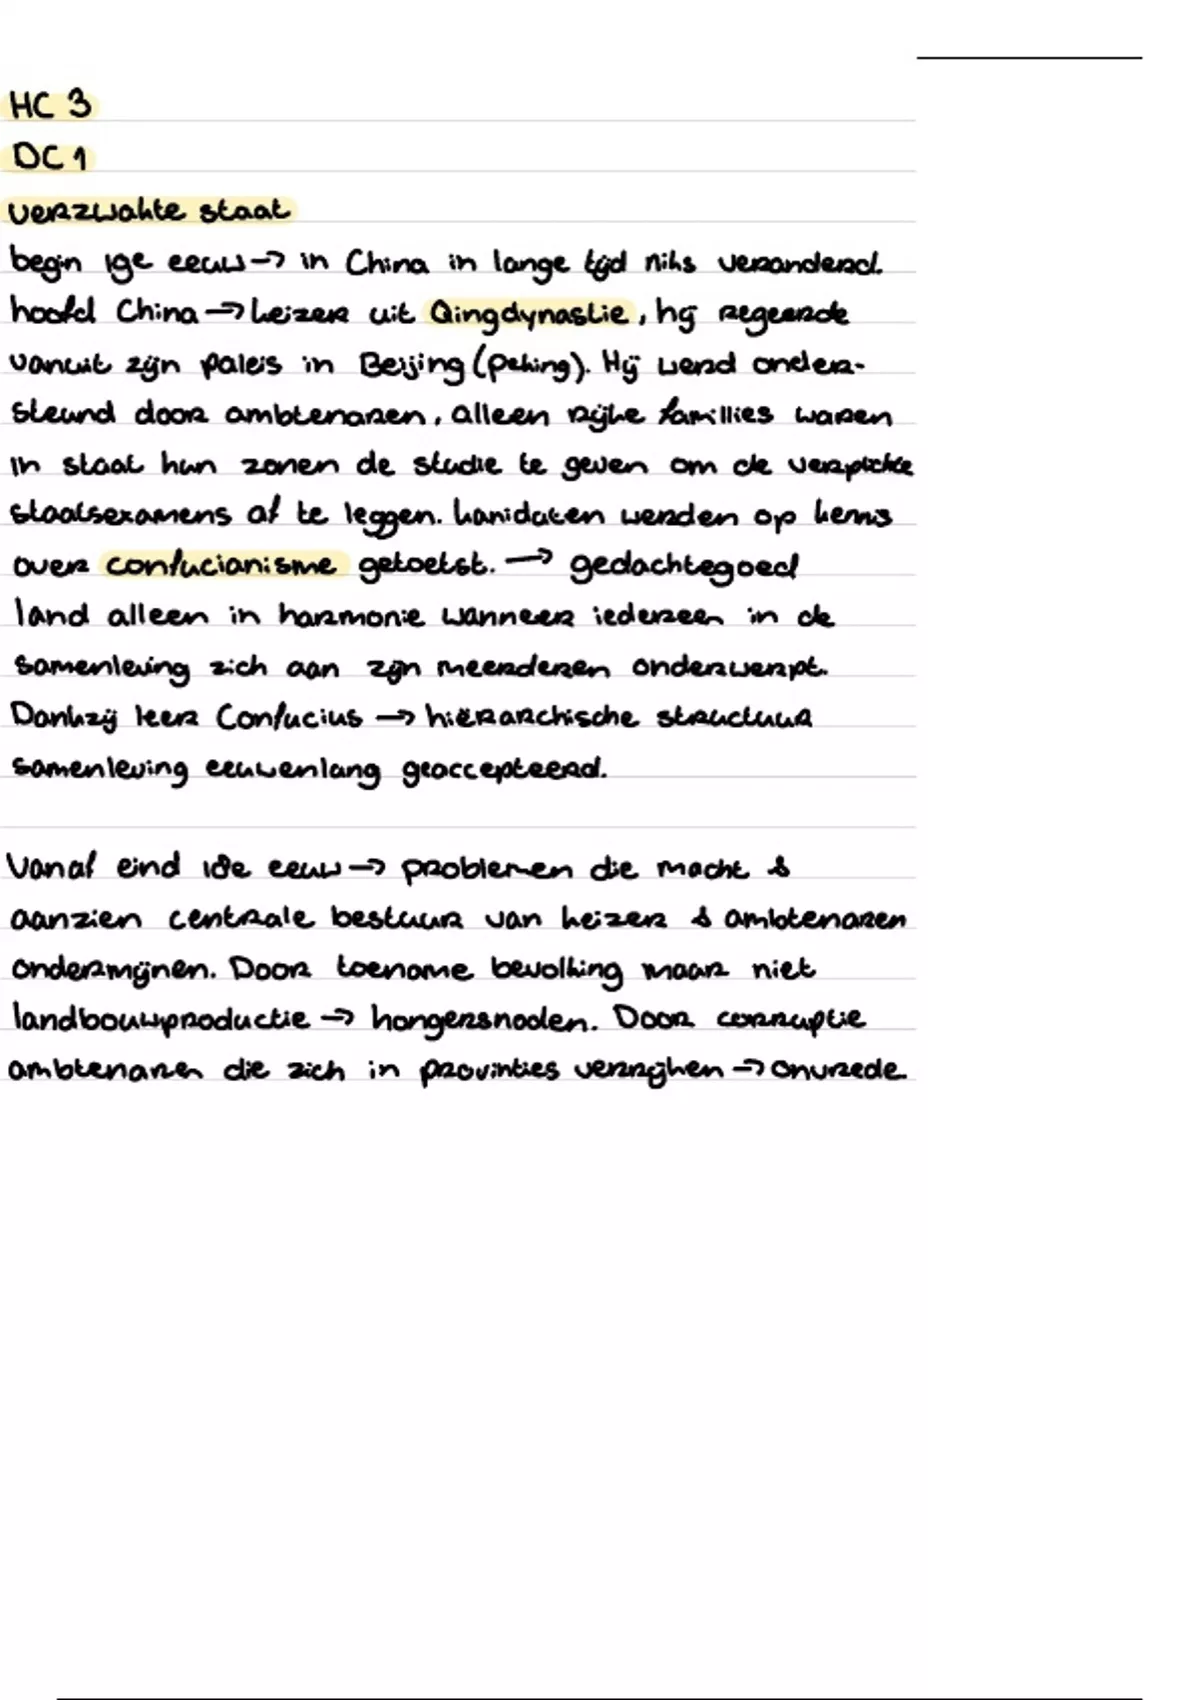 HC 3
DC 1
verzwakte staat
begin 19e eeuw → in China in lange tijd niks veranderd.
hoofd China → keizer uit Qingdynastie, hij regeerde
vanuit zijn paleis in Beijing (Peking). Hij werd onder-
steund door ambtenaren, alleen rijke famillies waren
in staat hun zonen de studie te geven om de verplichte
staatsexamens af te leggen. kanidaten werden op kennis
over confucianisme getoetst. → gedachtegoed
land alleen in harmonie wanneer iedereen in de
samenleving zich aan zijn meerderen onderwerpt.
Dankzij leer Confucius → hiërarchische structuur
samenleving eeuwenlang geaccepteerd.
Vanaf eind 18e eeuw → problemen die macht &
aanzien centrale bestuur van keizer & ambtenaren
ondermijnen. Door toename bevolking maar niet
landbouwproductie → hongersnoden. Door corruptie
ambtenaren die zich in provinties verrijken → onvrede.